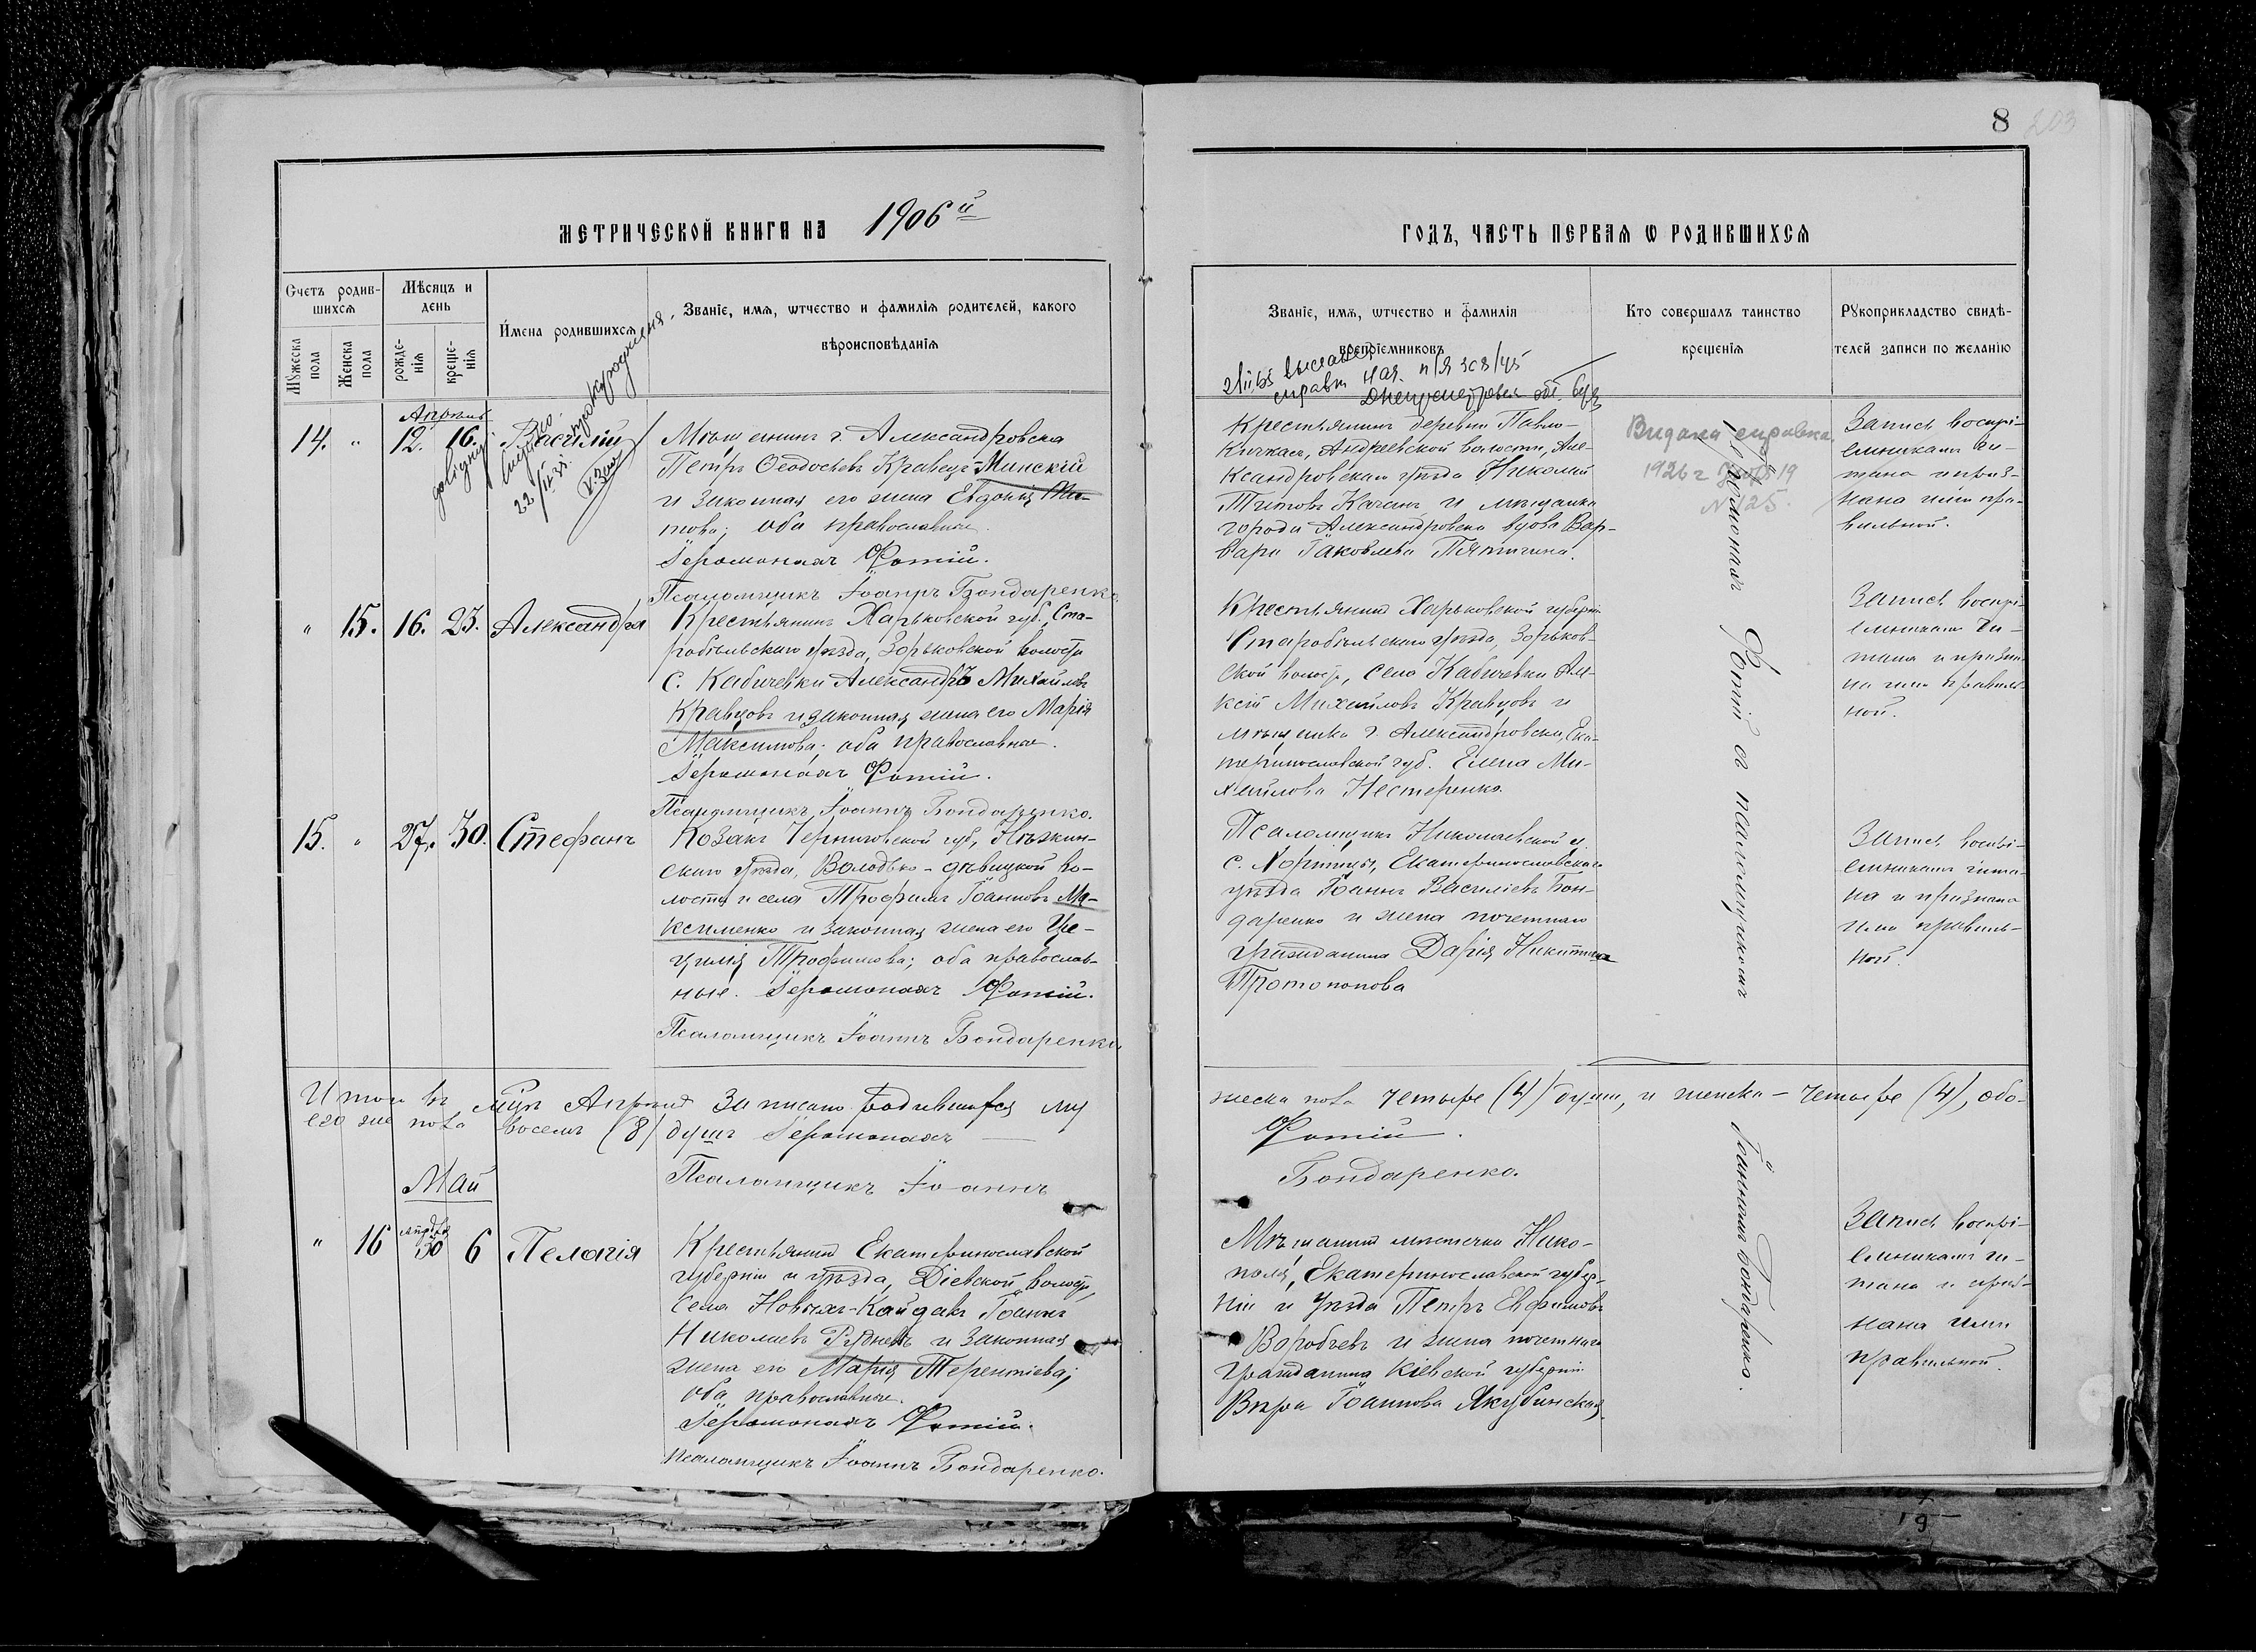 8 203
МЕТРИЧЕСКОЙ КНИГИ НА 1906й
ГОДЪ, ЧАСТЬ ПЕРВАЯ Ѡ РОДИВШИХСЯ
Счетъ родив-
шихся
Мужеска пола
Женска пола
Мѣсяцъ и день
рожде-
нія
креще-
нія
Имена родившихся
Званіе, имя, ѡтчество и фамилія родителей, какого
вѣроисповѣданія
Званіе, имя, ѡтчество и фамилія
воспріемниковъ
Кто совершалъ таинство
крещенія
Рукоприкладство свидѣ-
телей записи по желанію
Апрѣль
14. " 12. 16. Василій
22/IV-31.
Мѣщанинъ г. Александровска
Петръ Ѳеодосіевъ Кравецъ-Минскій
и законная его жена Евдокія Ти-
това; оба православные.
Іеромонахъ Фотій.
Псаломщикъ Іоаннъ Бондаренко.
справки
Крестьянинъ деревни Павло-
Кичкаса, Андреевской волости, Але-
ксандровскаго уѣзда Николай
Титовъ Качанъ и мѣщанка
города Александровска вдова Вар-
вара Іаковлева Пятигина.
Видана справка
1926 г 19
N 125.
Запись воспрі-
емниками чи-
тана и приз-
нана ими пра-
вильной.
" 15. 16. 23. Александра
Крестьянинъ Харьковской губ., Ста-
робѣльскаго уѣзда, Зорьковской волости
с. Кабичевки Александръ Михайловъ
Кравцовъ и законная жена его Марія
Максимова; оба православные.
Іеромонахъ Фотій.
Псаломщикъ Іоаннъ Бондаренко.
Крестьянинъ Харьковской губерніи
Старобѣльскаго уѣзда, Зорьков-
ской волости, села Кабичевки Але-
ксѣй Михайловъ Кравцовъ и
мѣщанка г. Александровска, Ека-
теринославской губ. Елена Ми-
хайлова Нестеренко.
Запись воспрі-
емниками чи-
тана и призна-
на ими правиль-
ной.
15. " 27. 30. Стефанъ
Козакъ Черниговской губ., Нѣжин-
скаго уѣзда, Володько-дѣвицкой во-
лости и села Трофимъ Іоанновъ Ма-
ксименко и законная жена его Це-
цилія Трофимова; оба православ-
ные. Іеромонахъ Фотій.
Псаломщикъ Іоаннъ Бондаренко.
Псаломщикъ Николаевской ц.
с. Хортицы, Екатеринославскаго
уѣзда Іоаннъ Василіевъ Бон-
даренко и жена почетнаго
гражданина Дарія Никитина
Протопопова
Запись воспрі-
емниками чита-
на и признана
ими правиль-
ной.
Іеромонахъ Фотій съ псаломщикомъ
Іоанномъ Бондаренко.
Итого въ мѣс. Апрѣлѣ записано родившихся му
жеска пола четыре (4) души, и женска - четыре (4), обо-
его же пола восемь (8) душъ Іеромонахъ
Фотій.
Псаломщикъ Іоаннъ
Бондаренко.
Май
" 16 Апрѣля 30 6 Пелагія
Крестьянинъ Екатеринославской
губерніи и уѣзда, Діевской волости,
села Новыхъ-Кайдакъ Іоаннъ
Николаевъ Рудневъ и законная
жена его Марія Терентіева;
оба православные.
Іеромонахъ Фотій.
Псаломщикъ Іоаннъ Бондаренко.
Мѣщанинъ мѣстечка Нико-
поля, Екатеринославской губер-
ніи и уѣзда Петръ Евфимовъ
Воробьевъ и жена почетнаго
гражданина Кіевской губерніи
Вѣра Іоаннова Якубинская.
Запись воспрі-
емниками чи-
тана и приз-
нана ими
правильной.